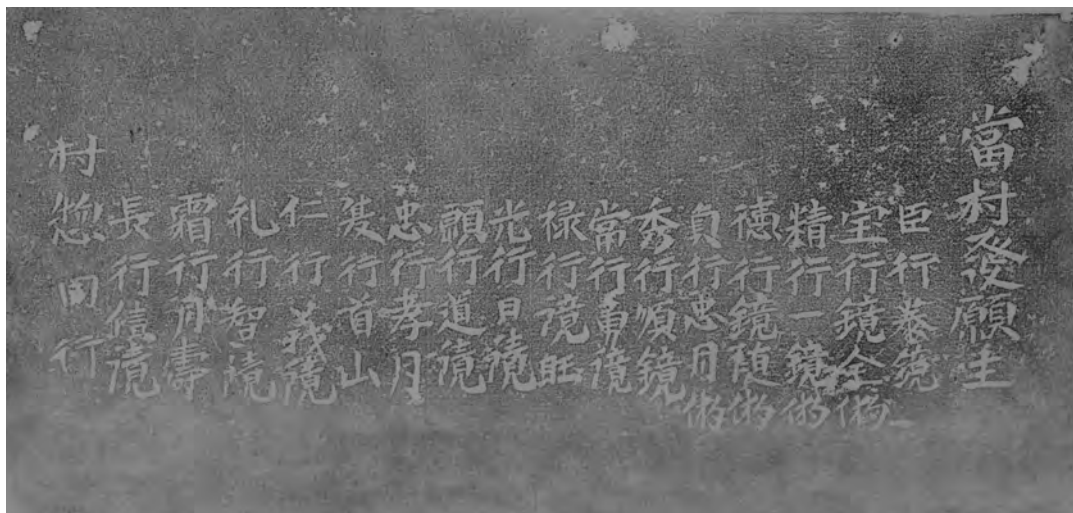 當村發愿主
臣行養鏡
宝行鏡全
精行一鏡𠆳
德行鏡随𠆳
負行忠月𠆳
秀行順鏡
常行勇境
禄行境旺
光行日境
顕行道境
忠行孝月
行首山
仁行義境
礼行智境
霜行月壽
長行信境
村惣囘行